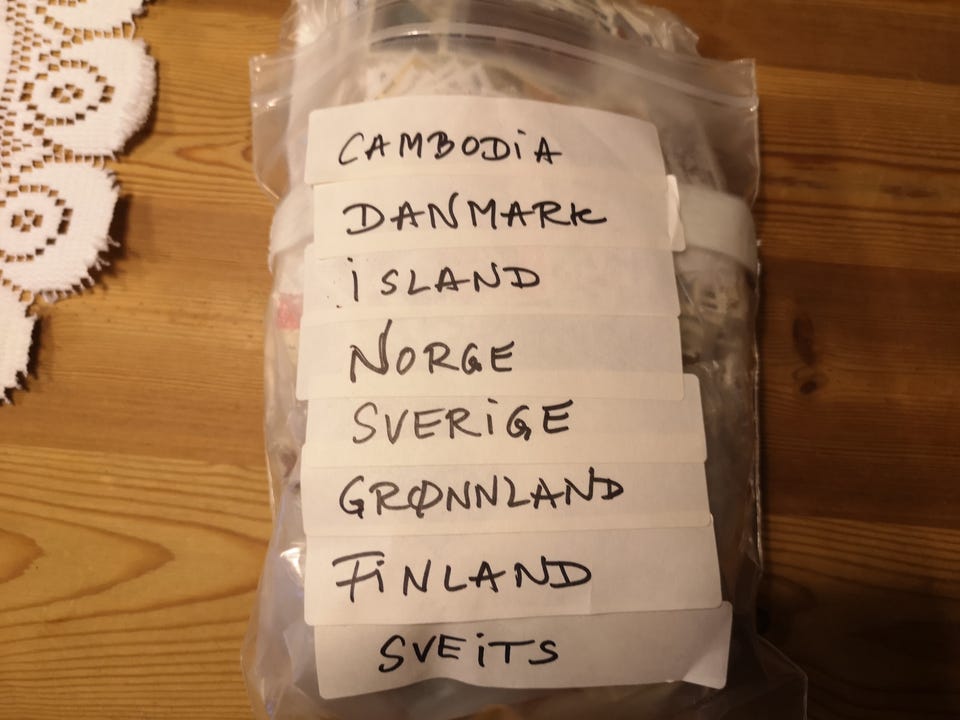 CAMBODiA
DANMARK
iSLAND
NORGE
SVERiGE
GRØNNLAND
FiNLAND
SVEiTS